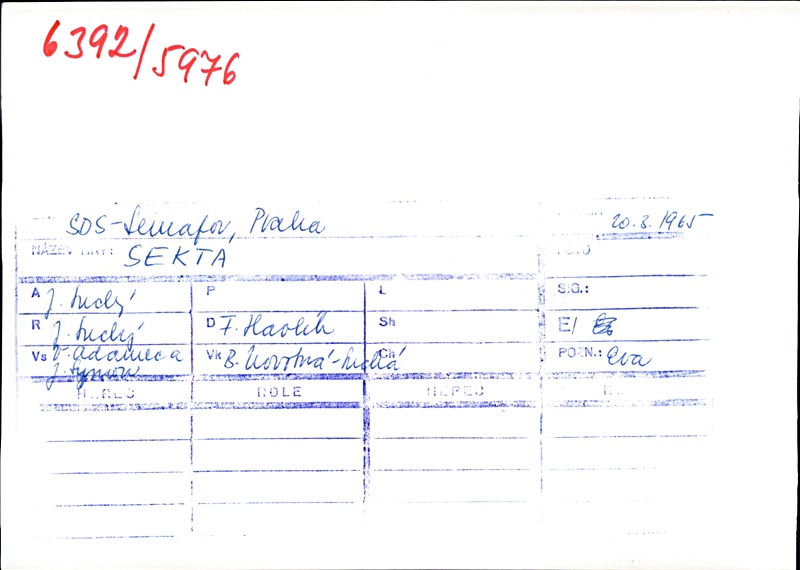 6392/5976
SDS-Semafor, Praha 20.3.1965
NÁZEV HRY: SEKTA
A J. Suchý P L SIG.:
R J. Suchý D F. Havlík Sh E/
Vs V. Adamec a Vk B. Novotná-Suchá Ch POZN.: Eva
J.
HEREC ROLE HEREC